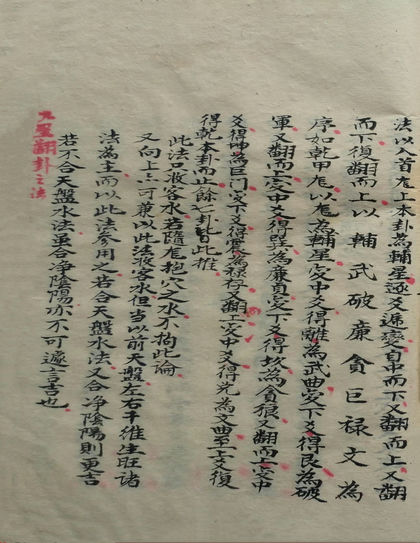 法以入首龙上本卦為輔星逐爻遞變自中而下又翻而上又翻
而下復翻而上以輔武破廉貪巨禄文為
序如乾甲龙以龙為輔星変中爻得離為武曲変下爻得艮為破
軍又翻而上変中爻得巽為廉貞変下爻得坎為貪狼又翻而上変中
爻得坤為巨门変下爻得震為禄存又翻上変中爻得兌為文曲至上爻復
得乾本卦而止餘七卦皆此推
此法只收客水若隨龙抱穴之水不拘此論
又向上亦可兼以此法收客水但当以前天盤左右干維生旺諸
法為主而以此法参用之若合天盤水法又合净陰陽則更吉
若不合天盤水法虽合净陰陽亦不可遽言吉也
九星翻卦之法